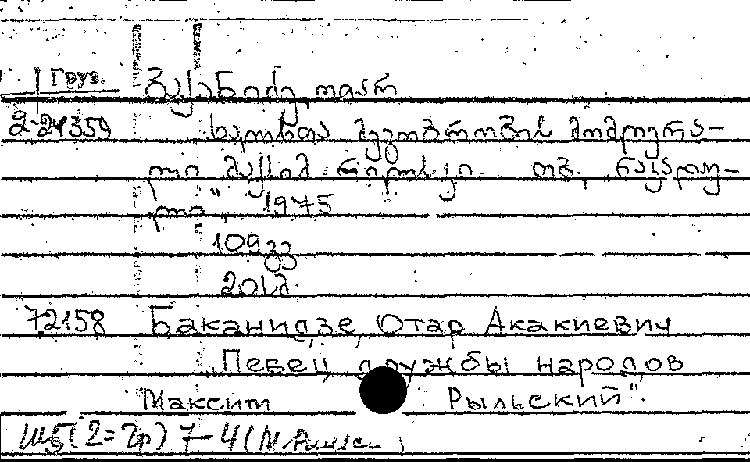 Груз. ბაქანიძე, ოთარ
2-21359 ხალხთა მეგობრობის მომღერა-
ლი მაქსიმ რილსკი. თბ., „ნაკადუ-
ლი", 1975
109გვ
20სმ.
72158 Баканидзе, Отар Акакиевич
„Певец дружбы народов
Максим Рыльский".
7-4